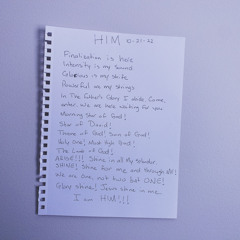 HIM 10-21-22
Finalization is here
Intensity is my sound
Glorious is my state
Powerful are my strings
In The Father's Glory I abide. Come,
enter. We are here waiting for you
Morning Star of God!
Star of David!
Throne of God! Son of God!
Holy One! Most high God!
The Lamb of God!
ARISE!!! Shine in all my splendor.
SHINE! Shine for me and through ME!
We are one, not two but ONE!
Glory shine! Jesus shine in me.
I am HIM!!!